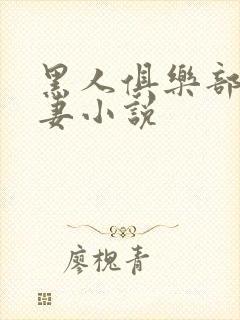 黑人俱樂部
妻小說
廖槐青